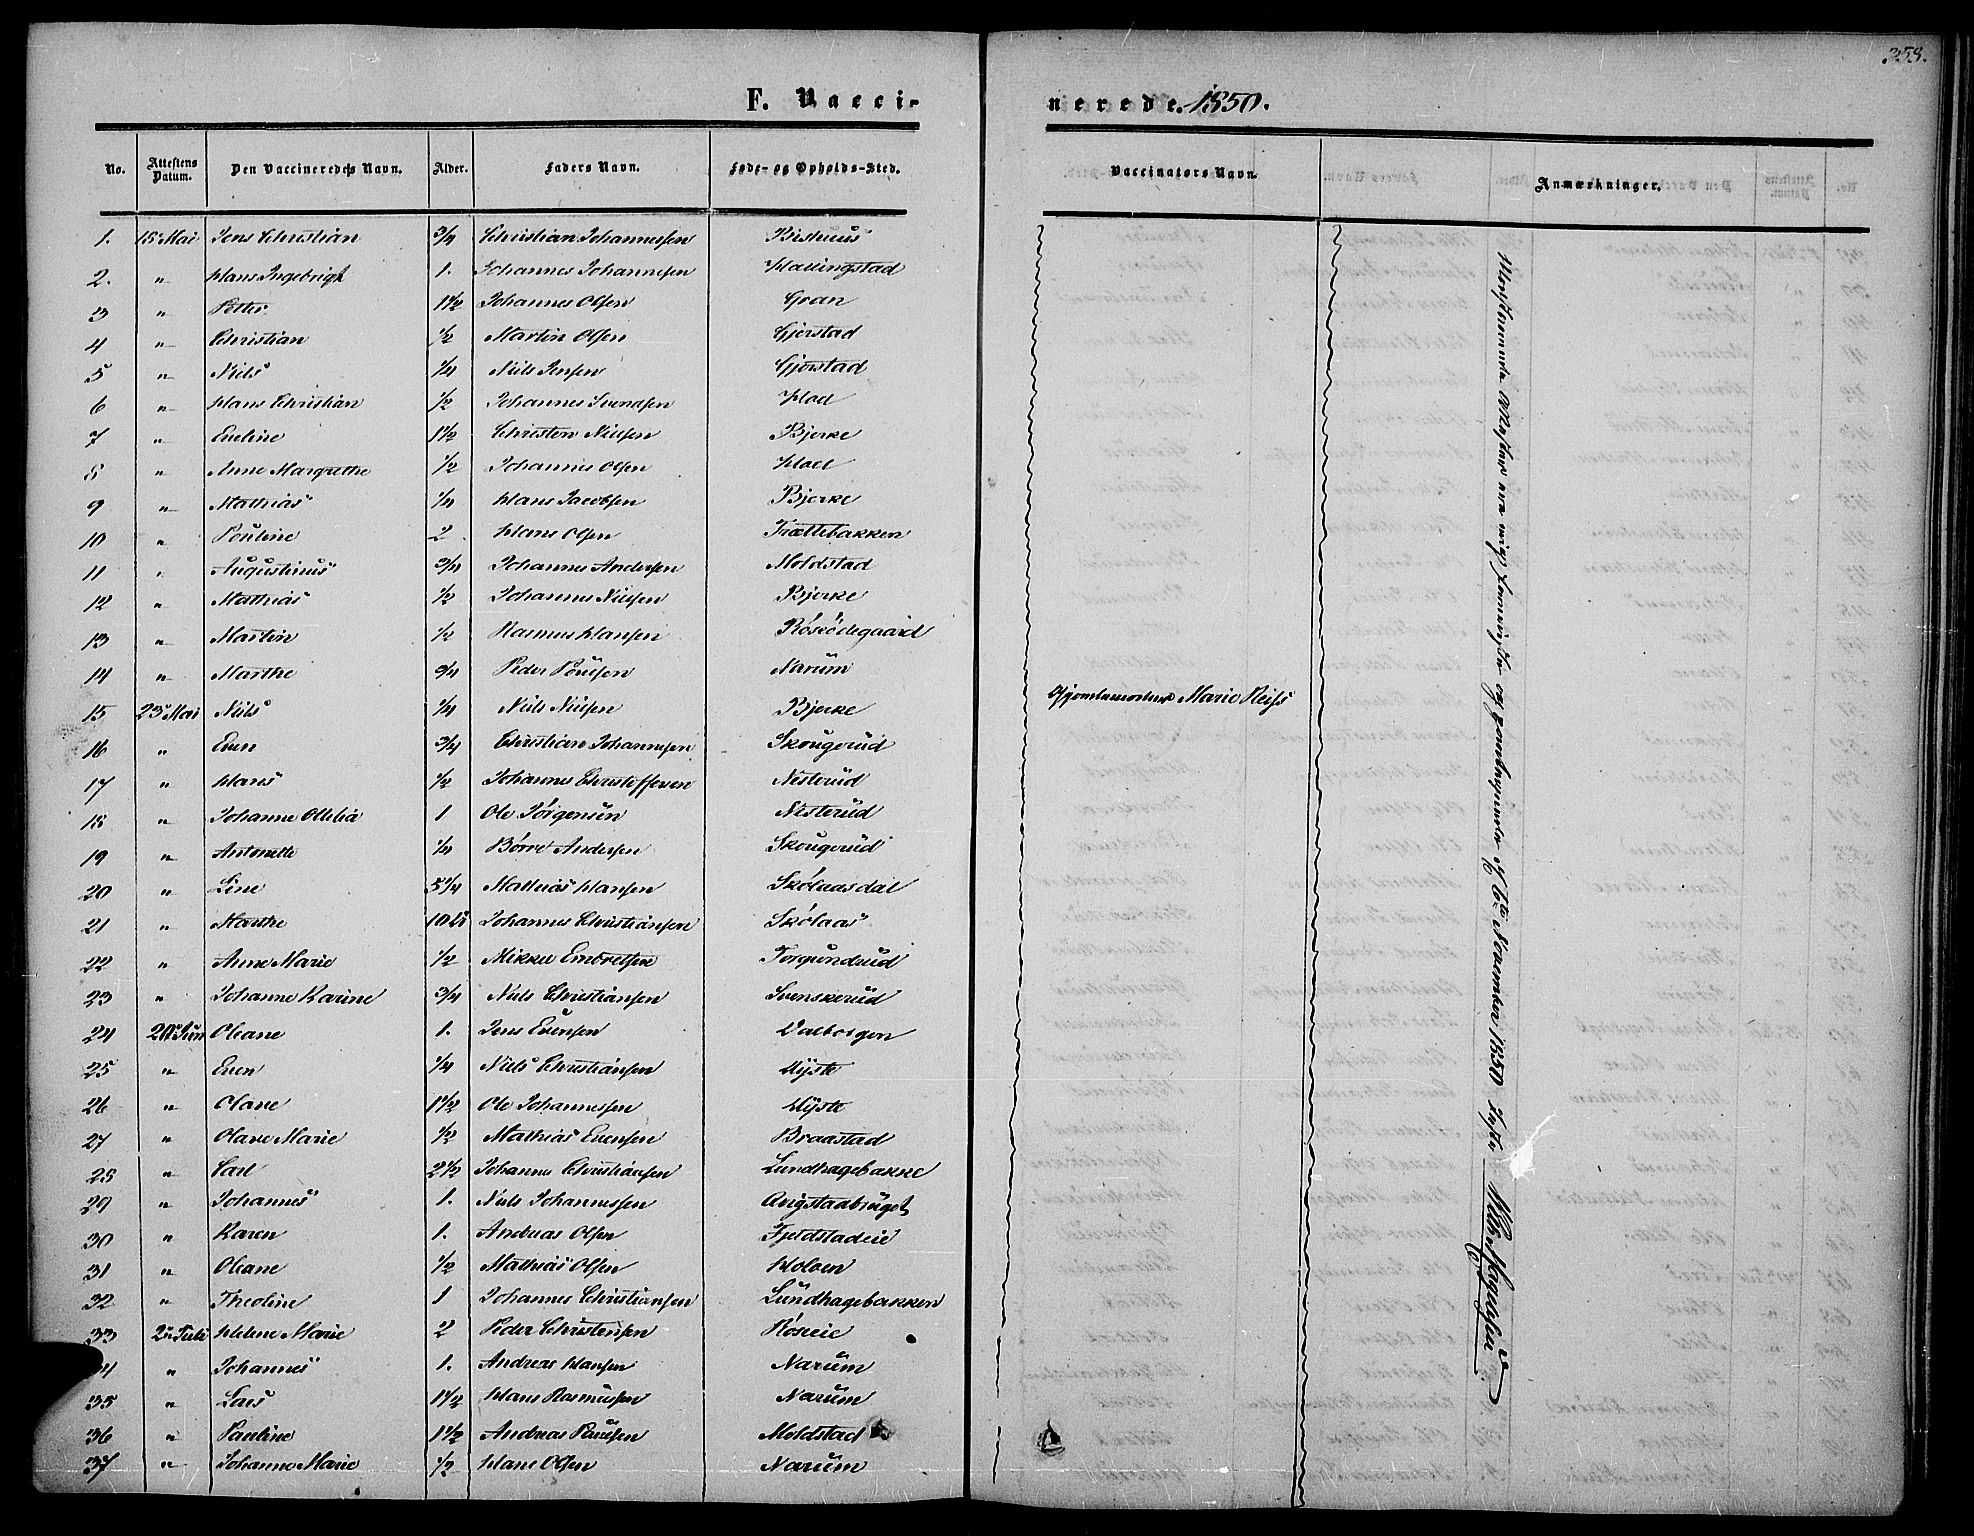 358.
F. Vacci-nerede. 1850.
No. Attestens Datum. Den Vaccineredes Navn. Alder. Faders Navn. Føde- og Opholds-Sted. Vaccinators Navn. Anmærkninger.
1. 15 Mai Jens Christian 3/4 Christian Johannessen
2. " Hans Ingebrigt 1. Johannes Johannesen Hallingstad
3 " Petter 1 1/2 Johannes Olsen Gran
4 " Christian 1/2 Martin Olsen Gjerstad
5 " Niels 1/4 Niels Jensen Gjerstad
6 " Hans Christian 1/2 Johannes Svendsen
7 " Eveline 1 1/2 Christen Nielsen Bjerke
8 " Anne Margrethe 1/2 Johannes Olsen
9 " Mathias 1/4 Hans Jacobsen Bjerke
10 " Pouline 2 Hans Olsen Trættebakken
11 " Augustinus 3/4 Johannes Andersen Moldstad
12 " Mathias 1/2 Johannes Nielsen Bjerke
13 " Martin 1/2 Rasmus Hansen
14 " Marthe 3/4 Peder Poulsen Narum
15 23 Mai Niels 1/4 Niels Nielsen Bjerke Gjordemoder Marie Reiss
16 " Even 3/4 Christian Johannesen Skougerud
17 " Hans 1/2 Johannes Christoffersen Nesterud
18 " Johanne Ottilia 1 Ole Jørgensen Nesterud
19 " Antonette 1/4 Børre Andersen Skougerud
20 " Line 5 1/4 Mathias Hansen Skølaasdal
21 " Marthe Johannes Christiansen Skølaas
22 " Anne Marie 1/2 Mikkel Embretsen Torgundrud
23 " Johanne Karine 3/4 Niels Christiansen Svenskerud
24 20 Jun Oleane 1. Jens Evensen Valborgen
25 " Even 1/4 Niels Christiansen
26 " Olane 1 1/2 Ole Johannessen
27 " Olave Marie 1/2 Mathias Evensen Braastad
28 " Carl 2 1/2 Johannes Christiansen Lundhagebakke
29 " Johannes 1. Niels Johannessen
30 " Karen 1. Andreas Olsen Fjeldstadeie
31 " Oleane 1/2 Mathias Olsen Holven
32 " Theoline 1 Johannes Christiansen Lundhagebakken
33 2 Juli Helene Marie 2 Peder Christensen Røseie
34 " Johannes 1. Andreas Hansen Narum
35 " Lars 1 1/2 Hans Rasmussen Narum
36 " Pauline 1 1/2 Andreas Paulsen Moldstad
37 " Johanne Marie 1/2 Hans Olsen Narum
6te November 1850